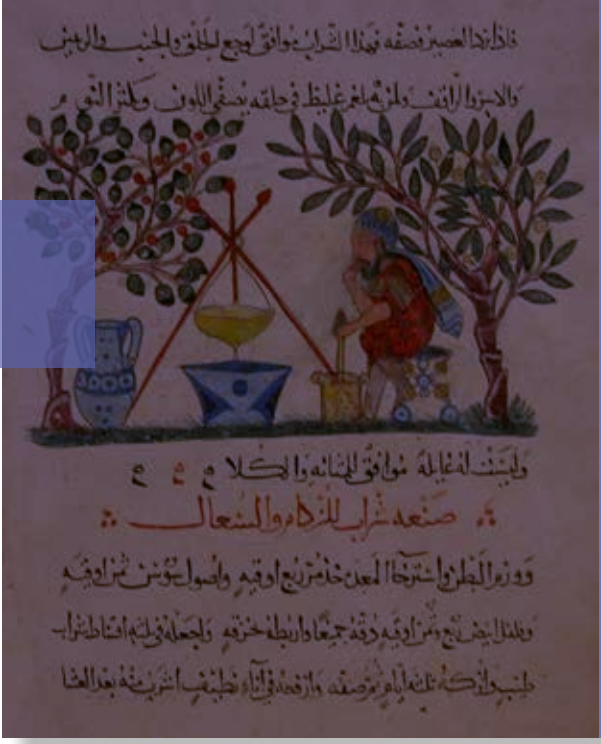 فاذا برد العصير فصفه فهذا الشراب موافق لوجع الحلق والجنب والر
ولمن به بلغم غليظ في حلقه يصفي اللون
وليست له غايلة موافق للمثانه والكلا
صنعه شراب للزكام والسعال
وورم البطن واسترخا المعده خذ مر ربع اوقيه واصول سوسن ثمن اوقيه
وفلفل ابيض ربع وثمن اوقيه دقه جميعا واربطه بخرقه واجعله في ثلثة اقساط شراب
طيب واتركه ثلثه ايام ثم صفه وارفعه في اناء نظيف اشرب منه بعد العشا